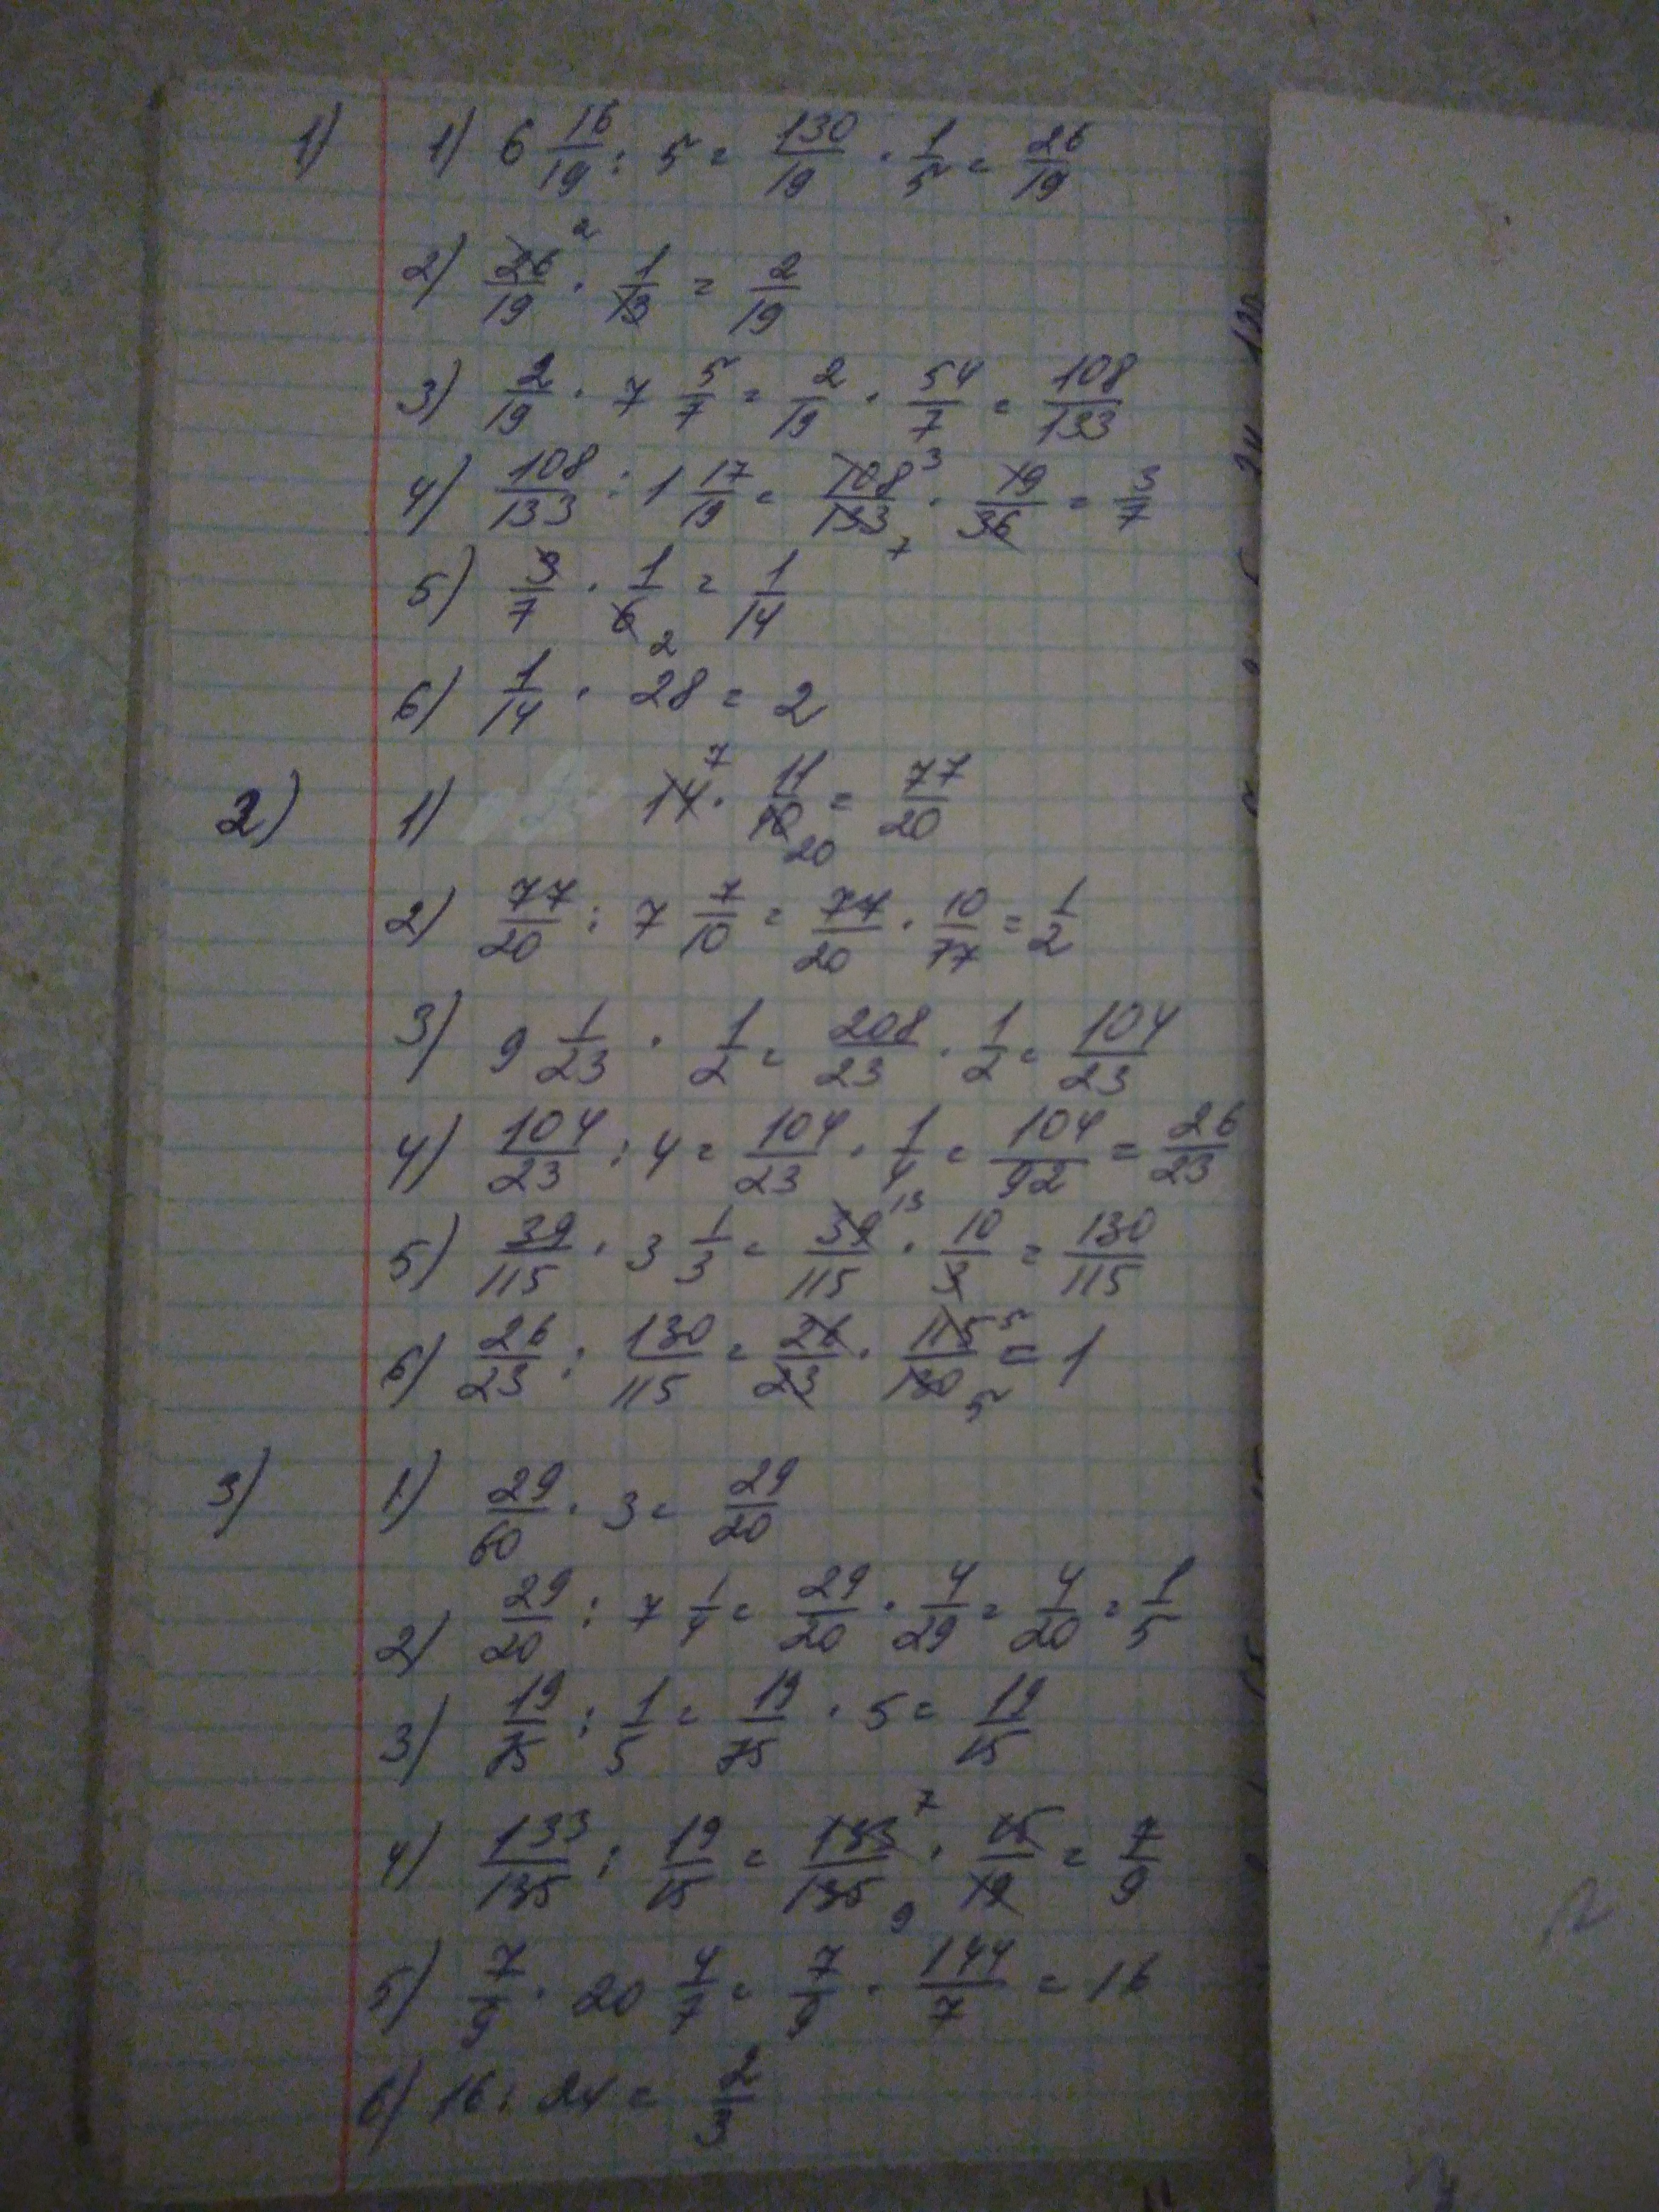 1) 1) 6 16/19 : 5 = 130/19 · 1/5 = 26/19
2) 26/19 2 · 1/13 = 2/19
3) 2/19 · 7 5/7 = 2/19 · 54/7 = 108/133
4) 108/133 : 1 17/19 = 108/133 3 7 · 19/36 = 3/7
5) 3/7 · 1/6 2 = 1/14
6) 1/14 · 28 = 2
2) 1) 14 7 · 11/40 20 = 77/20
2) 77/20 : 7 7/10 = 77/20 · 10/77 = 1/2
3) 9 1/23 · 1/2 = 208/23 · 1/2 = 104/23
4) 104/23 : 4 = 104/23 · 1/4 = 104/92 = 26/23
5) 39/115 · 3 1/3 = 39/115 13 · 10/3 = 130/115
6) 26/23 : 130/115 = 26/23 · 115/130 5 5 = 1
3) 1) 29/60 · 3 = 29/20
2) 29/20 : 7 1/4 = 29/20 · 4/29 = 4/20 = 1/5
3) 19/75 : 1/5 = 19/75 · 5 = 19/15
4) 133/135 : 19/15 = 133/135 7 9 · 15/19 = 7/9
5) 7/9 · 20 4/7 = 7/9 · 144/7 = 16
6) 16 : 24 = 2/3